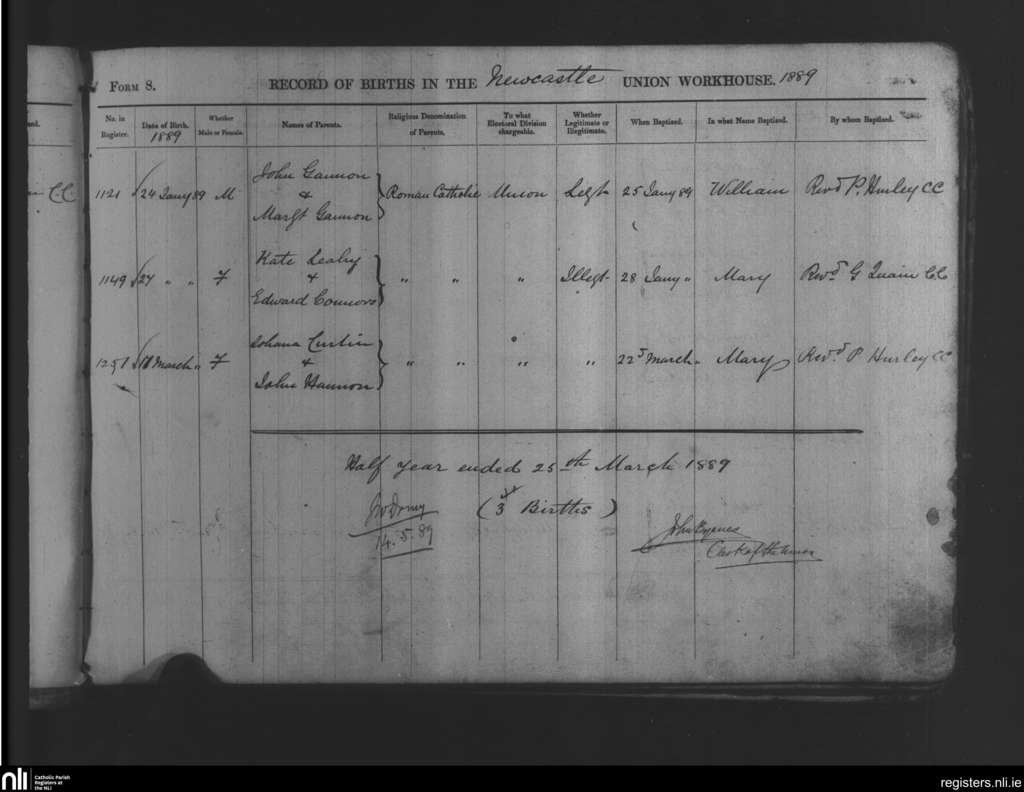 Form 8. RECORD OF BIRTHS IN THE Newcastle UNION WORKHOUSE. 1889
No. in Register. Date of Birth. 1889 Whether Male or Female. Names of Parents. Religious Denomination of Parents. To what Electoral Division chargeable. Whether Legitimate or Illegitimate. When Baptized. In what Name Baptized. By whom Baptized.
C.C.
John Gannon
1121 24 Jany 89 M & Roman Catholic Union Legt 25 Jany 89 William Revd P. Hurley CC
Margt Gannon
Kate Leahy
1149 27 " " F & " " " Illegt 28 Jany " Mary Revd G Quain C.C
Edward Connors
Johana Curtin
1251 18 March " F & " " " " 22d March " Mary Revd P Hurley CC
John Hannon
Half year ended 25th March 1889
( 3 Births )
14.5.89
John Byrnes
Clerk of the Union
nli Catholic Parish Registers at the NLI
registers.nli.ie